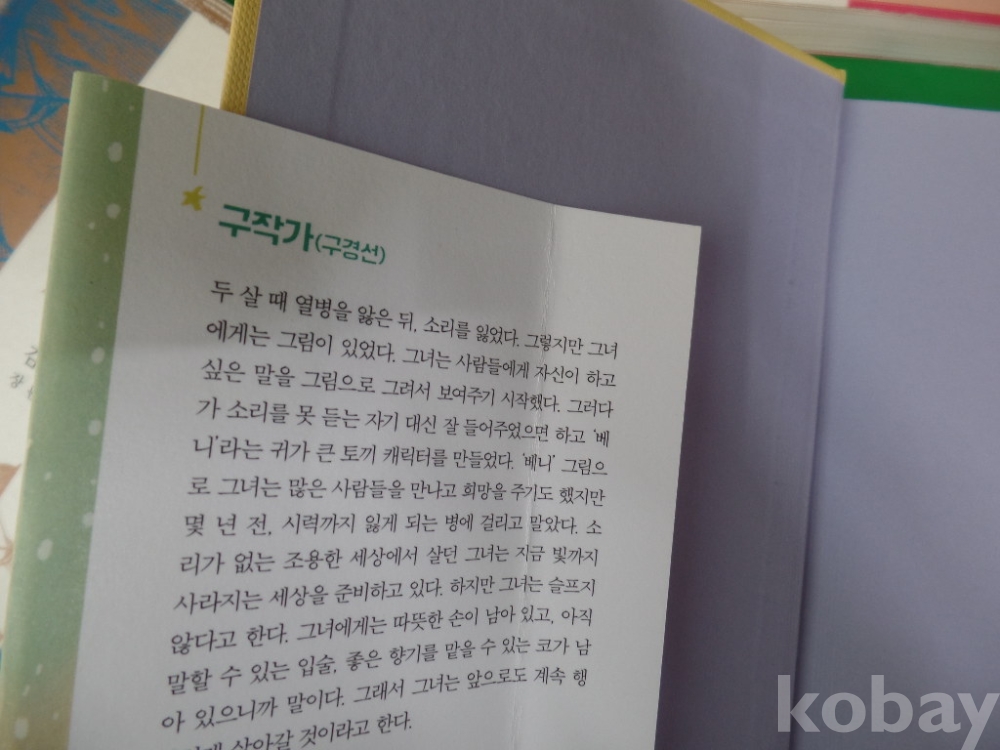 구작가(구경선)
두 살 때 열병을 앓은 뒤, 소리를 잃었다. 그렇지만 그녀
에게는 그림이 있었다. 그녀는 사람들에게 자신이 하고
싶은 말을 그림으로 그려서 보여주기 시작했다. 그러다
가 소리를 못 듣는 자기 대신 잘 들어주었으면 하고 ‘베
니’라는 귀가 큰 토끼 캐릭터를 만들었다. ‘베니’ 그림으
로 그녀는 많은 사람들을 만나고 희망을 주기도 했지만
몇 년 전, 시력까지 잃게 되는 병에 걸리고 말았다. 소
리가 없는 조용한 세상에서 살던 그녀는 지금 빛까지
사라지는 세상을 준비하고 있다. 하지만 그녀는 슬프지
않다고 한다. 그녀에게는 따뜻한 손이 남아 있고, 아직
말할 수 있는 입술, 좋은 향기를 맡을 수 있는 코가 남
아 있으니까 말이다. 그래서 그녀는 앞으로도 계속 행
살아갈 것이라고 한다.
kobay